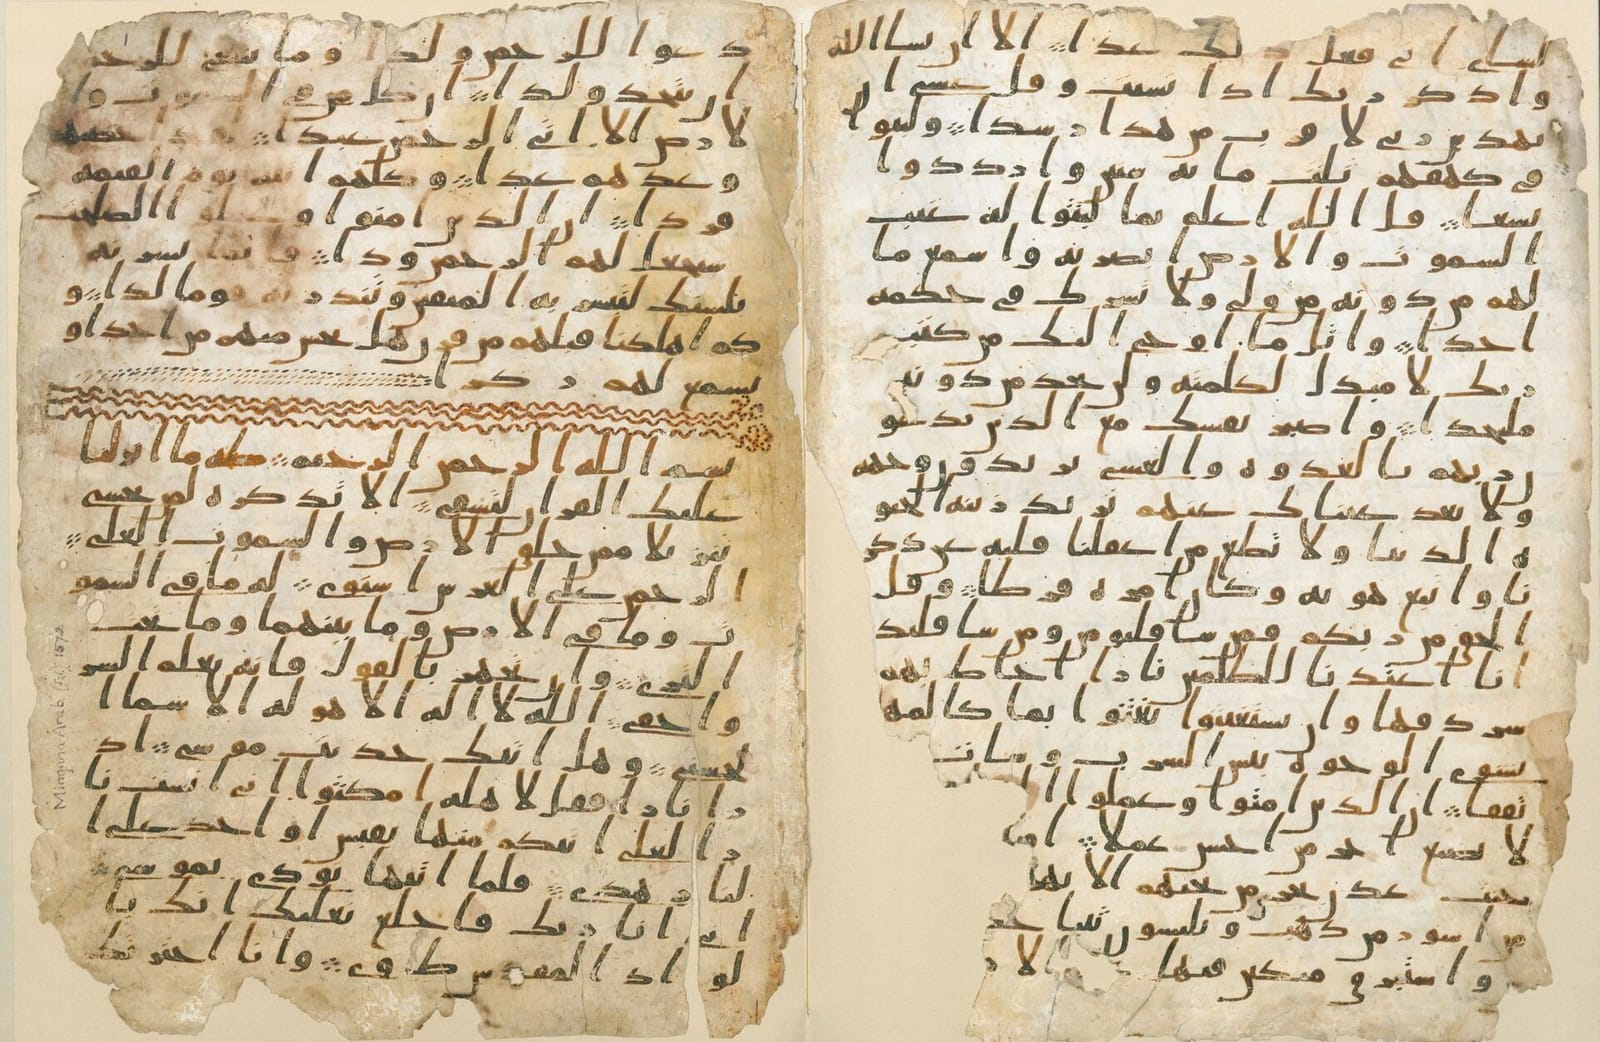 لشاى انى فعل ذلك غدا الا ان يشا الله
واذكر ربك اذا نسيت وقل عسى ا
ن يهدين ربى لاقرب من هذا رشدا ولبثوا
فى كهفهم ثلث مايه سنين وازددوا
تسعا قل الله اعلم بما لبثوا له غيب
السموت والارض ابصر به واسمع ما
لهم من دونه من ولى ولا يشرك فى حكمه
احدا واتل ما اوحى اليك من كتب
ربك لا مبدل لكلمته ولن تجد من دونه
ملتحدا واصبر نفسك مع الذين يدعو
ن ربهم بالغدوه والعشى يريدون وجهه
ولا تعد عيناك عنهم تريد زينه الحيو
ه الدنيا ولا تطع من اغفلنا قلبه عن ذكر
نا واتبع هويه وكان امره فرطا وقل
الحق من ربكم فمن شا فليومن ومن شا فليكفر
انا اعتدنا للظلمين نارا احاط بهم
سردقها وان يستغيثوا يغثوا بما كالمهل
يشوى الوجوه بئس الشرب وسات
تفقا ان الذين امنوا وعملوا ا
لا نضيع اجر من احسن عملا او
جنت عدن تجرى من تحتهم الانها
من اسور من ذهب ويلبسون ثيابا خضر
واستبرق متكين فيها الار
دعوا للرحمن ولدا وما ينبغى للرحمن
ان يتخذ ولدا ان كل من فى السموت وا
لارض الا اتى الرحمن عبدا لقد احصيهم
وعدهم عدا وكلهم اتيه يوم القيمه
فردا ان الذين امنوا وعملوا الصلحت
سيجعل لهم الرحمن ودا فانما يسرنه
بلسنك لتبشر به المتقين وتنذر به قوما لدا و
كم اهلكنا قبلهم من قرن هل تحس منهم من احد او
تسمع لهم ركزا
بسم الله الرحمن الرحيم طه ما انزلنا
عليك القران لتشقى الا تذكره لمن يخشى
تنزيلا ممن خلق الارض والسموت العلى
الرحمن على العرش استوى له ما فى السمو
ت وما فى الارض وما بينهما وما تحت
الثرى وان تجهر بالقول فانه يعلم السر
واخفى الله لا اله الا هو له الاسما ا
لحسنى وهل اتيك حديث موسى اذ
را نارا فقل لاهله امكثوا انى انست نا
را لعلى اتيكم منها بقبس او اجد على ا
لنار هدى فلما اتيها نودى يموسى
انى انا ربك فاخلع نعليك انك با
لواد المقدس طوى وانا اخترتك
Mingana Arab. (Isl.) 1572